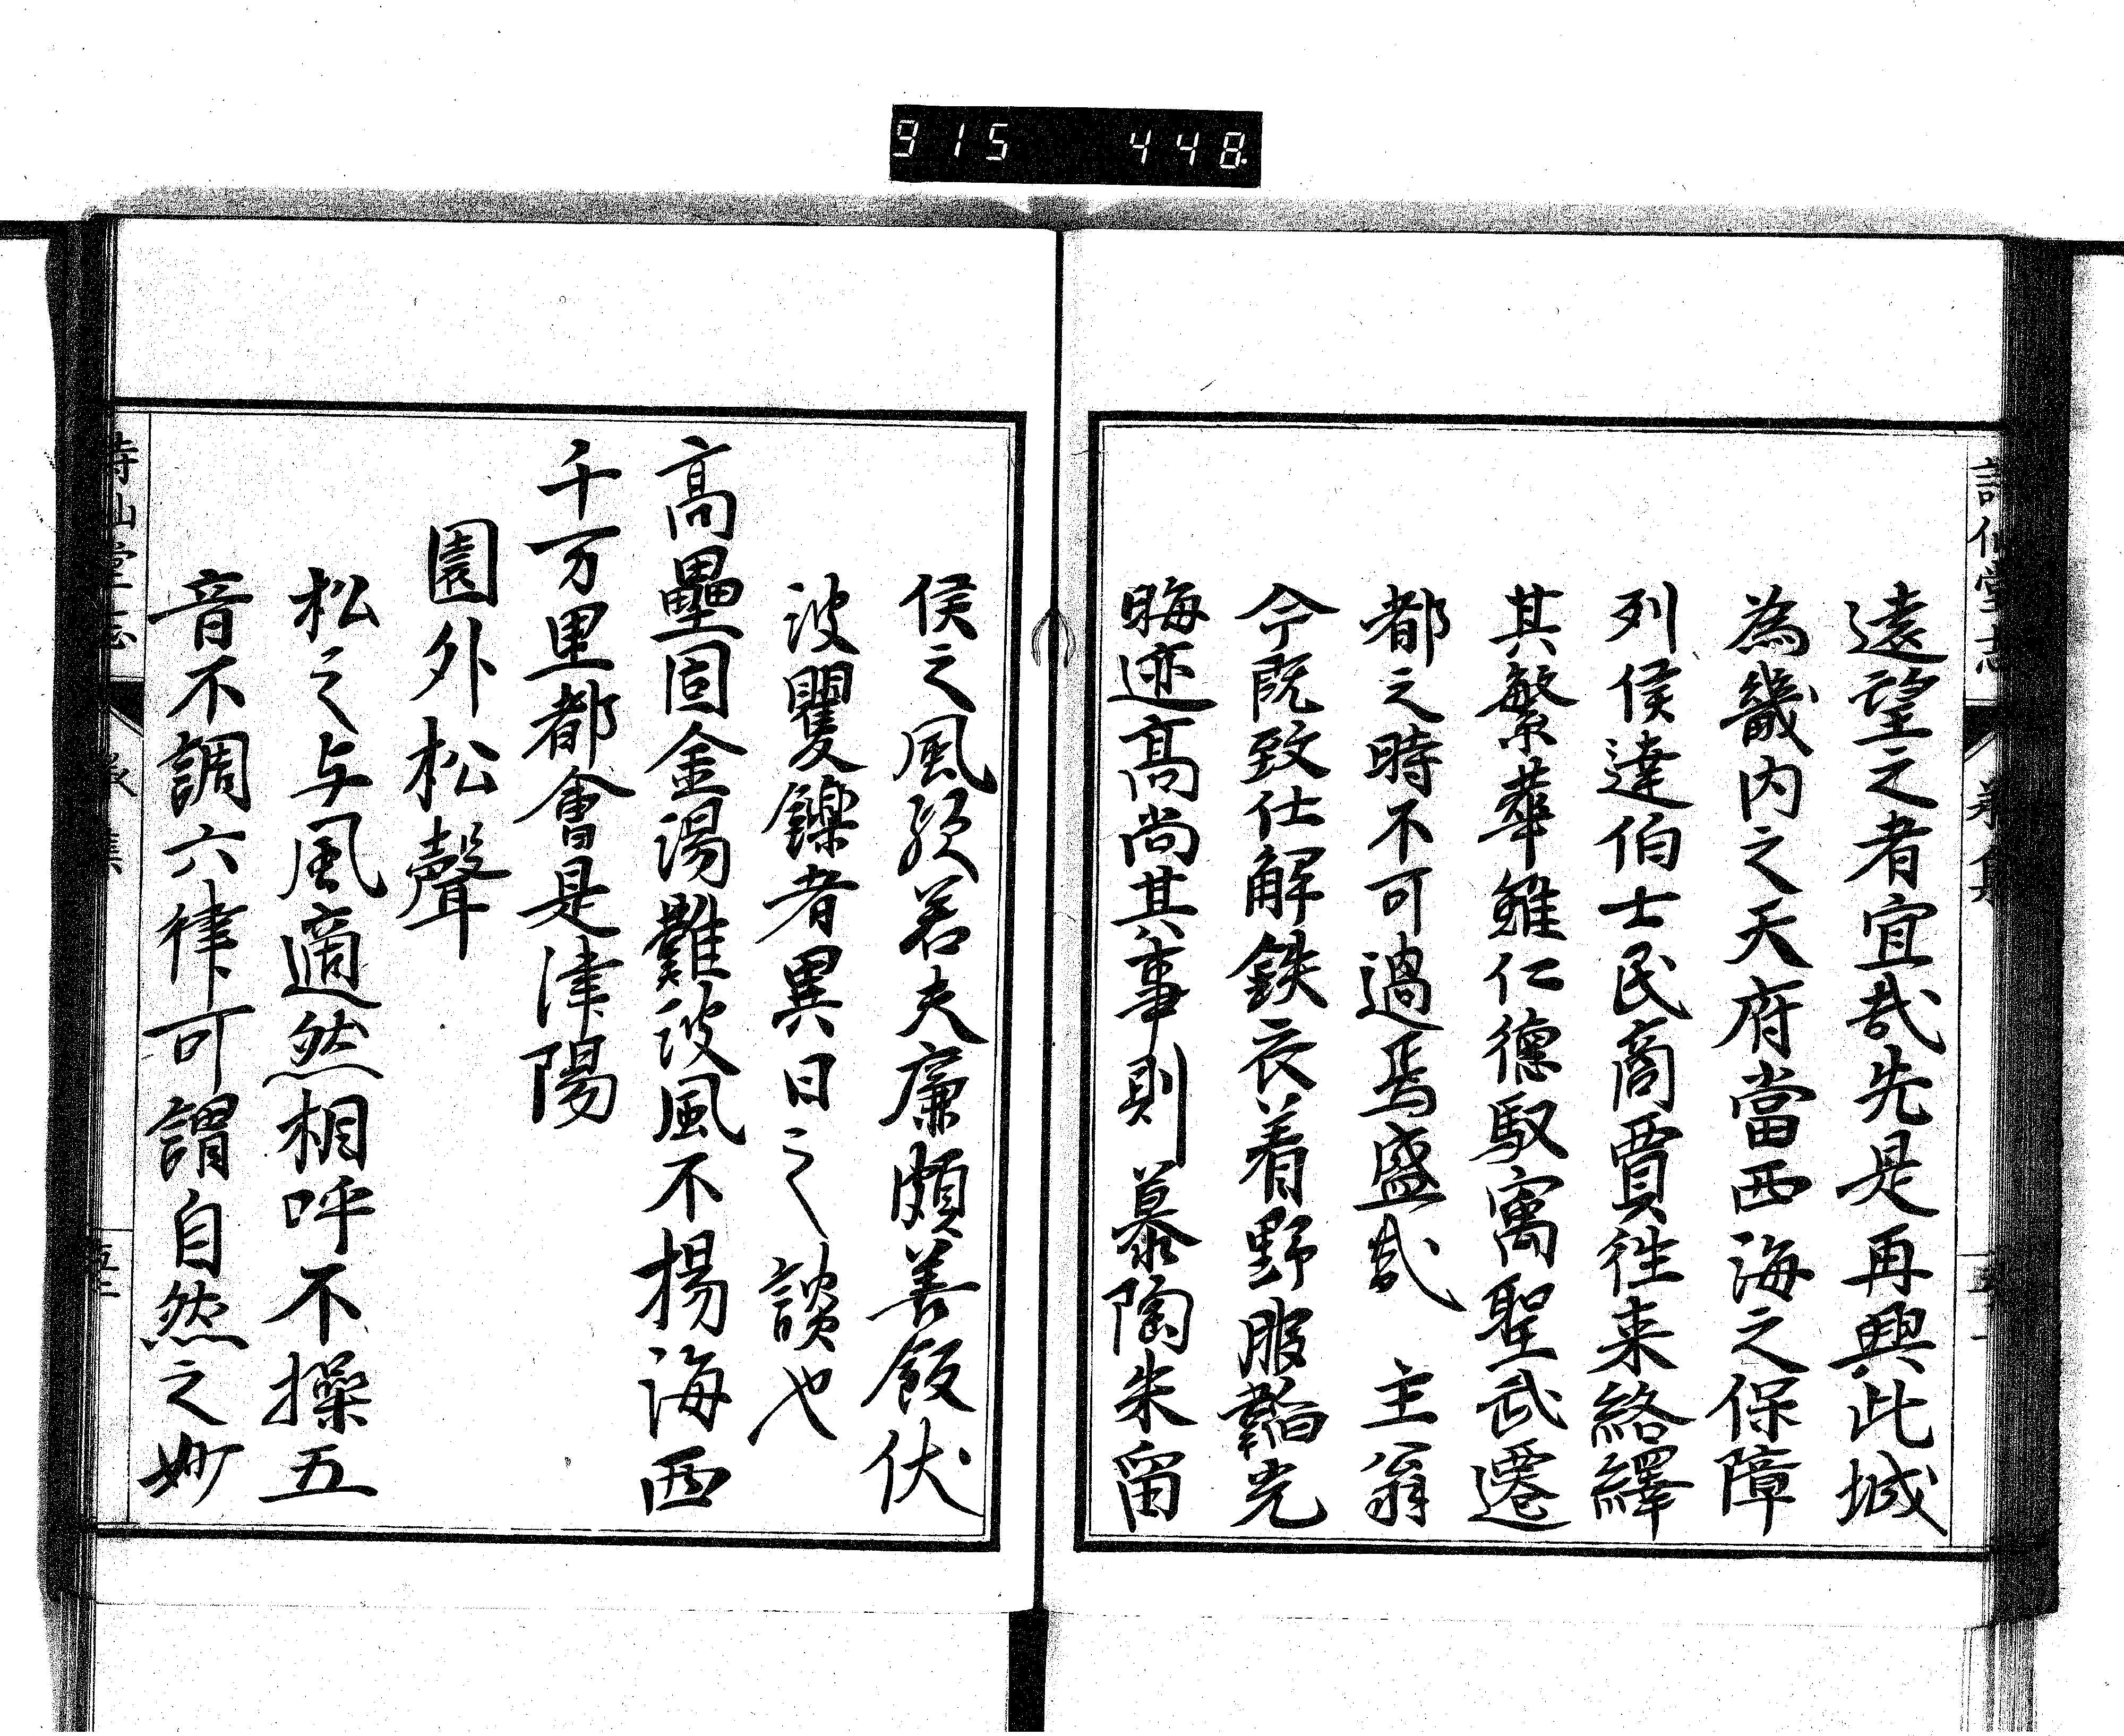 915 448
遠望之者宜哉先是再興此城
為畿内之天府當西海之保障
列侯達伯士民商賈徃来絡繹
其繁華雖仁德馭㝢聖武遷
都之時不可過焉盛哉 主翁
今既致仕解鉄衣着野服韜光
晦迹高尚其事則慕陶朱留
侯之風殆若夫廉頗善飯伏
波矍鑠者異日之談也
高壘固金湯難波風不揚海西
千万里都會是津陽
園外松聲
松之与風適然相呼不操五
音不調六律可謂自然之妙